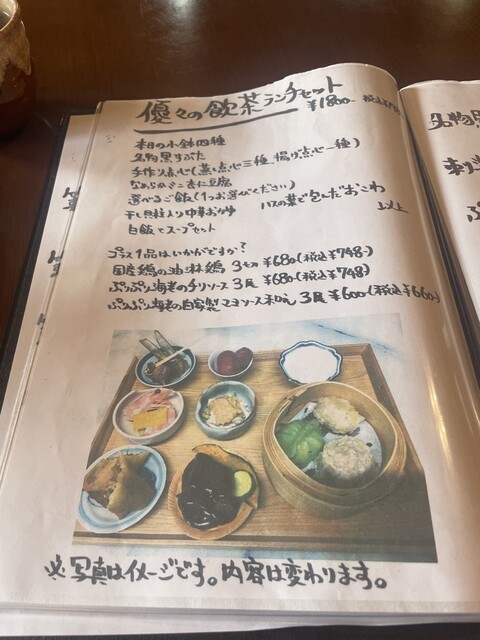 優々の飲茶ランチセット
¥1800-
本日の小鉢四種
名物黒すぶた
手作り点心(蒸し点心三種、揚げ点心一種)
なめらか杏仁豆腐
選べるご飯(1つお選びください)
干し貝柱入り中華お粥
ハスの葉で包んだおこわ
白飯とスープセット
以上
プラス1品はいかがですか?
国産鶏の油淋鶏 3切 ¥680(税込¥748-)
ぷりぷり海老のチリソース 3尾 ¥680(税込¥748)
ぷりぷり海老の自家製マヨソース和え 3尾 ¥600-(税込¥660-)
※写真はイメージです。内容は変わります。
名物黒